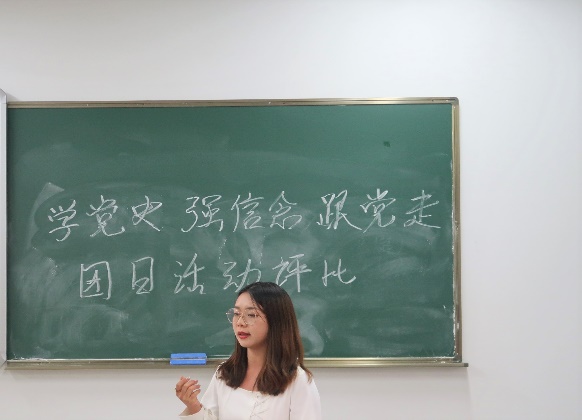 学党史 强信念 跟党走
团日活动评比